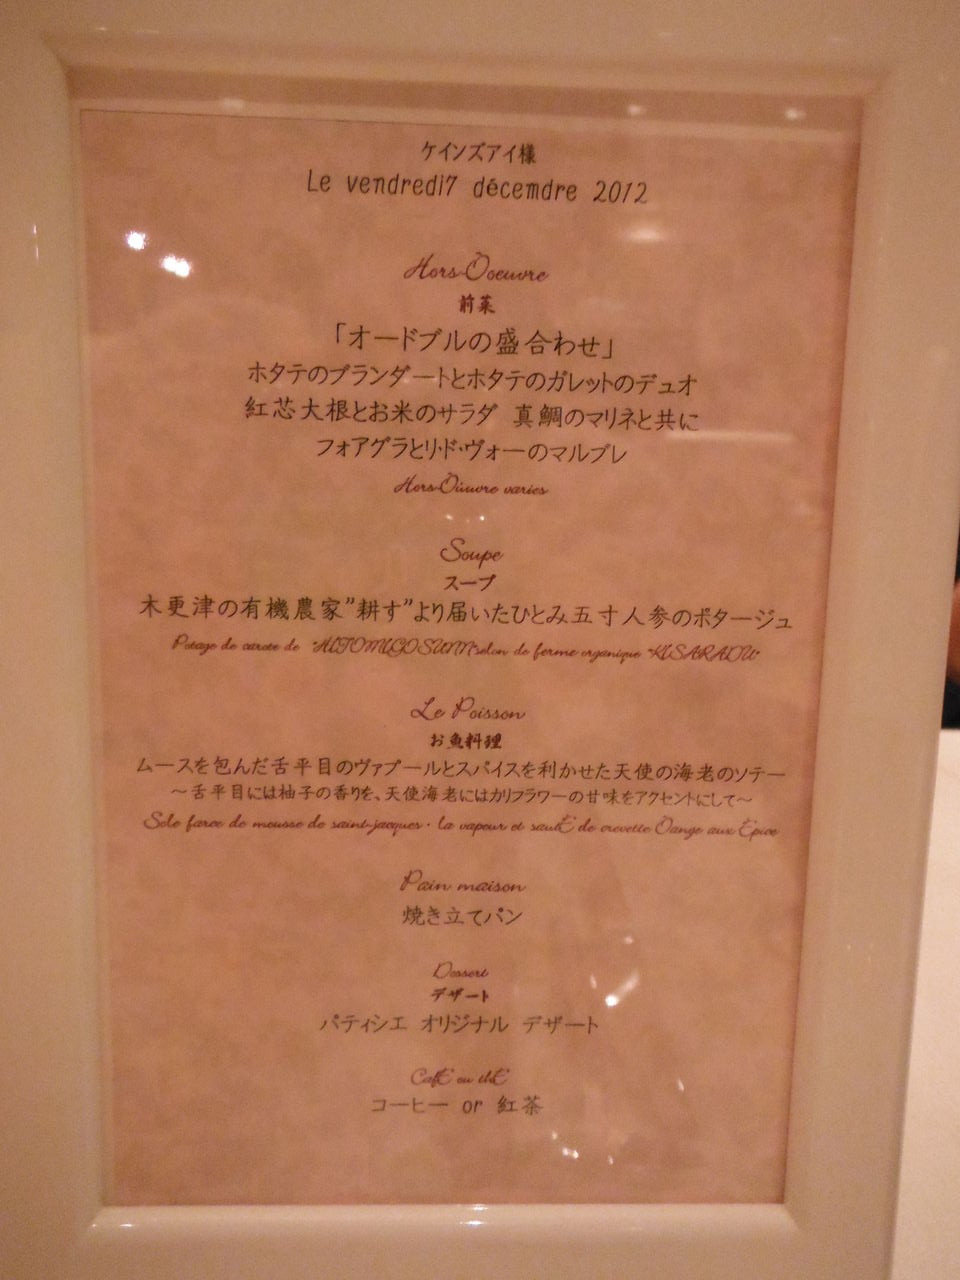 ケインズアイ様
Le vendredi7 décemdre 2012
Hors-Ooeuvre
前菜
「オードブルの盛合わせ」
ホタテのブランダートとホタテのガレットのデュオ
紅芯大根とお米のサラダ 真鯛のマリネと共に
フォアグラとリ・ド・ヴォーのマルブレ
varies
Soupe
スープ
木更津の有機農家”耕す”より届いたひとみ五寸人参のポタージュ
Potage de carote de "HITOMIGOSUNN"selon de ferme organique "KISARADU"
Le Poisson
お魚料理
ムースを包んだ舌平目のヴァプールとスパイスを利かせた天使の海老のソテー
～舌平目には柚子の香りを、天使海老にはカリフラワーの甘味をアクセントにして～
Sole farce de mousse de saint-jacques・la vapeur et sautÉ de crevette Oange aux Épice
Pain maison
焼き立てパン
Dessert
デザート
パティシエ オリジナル デザート
CafÉ ou thÉ
コーヒー or 紅茶